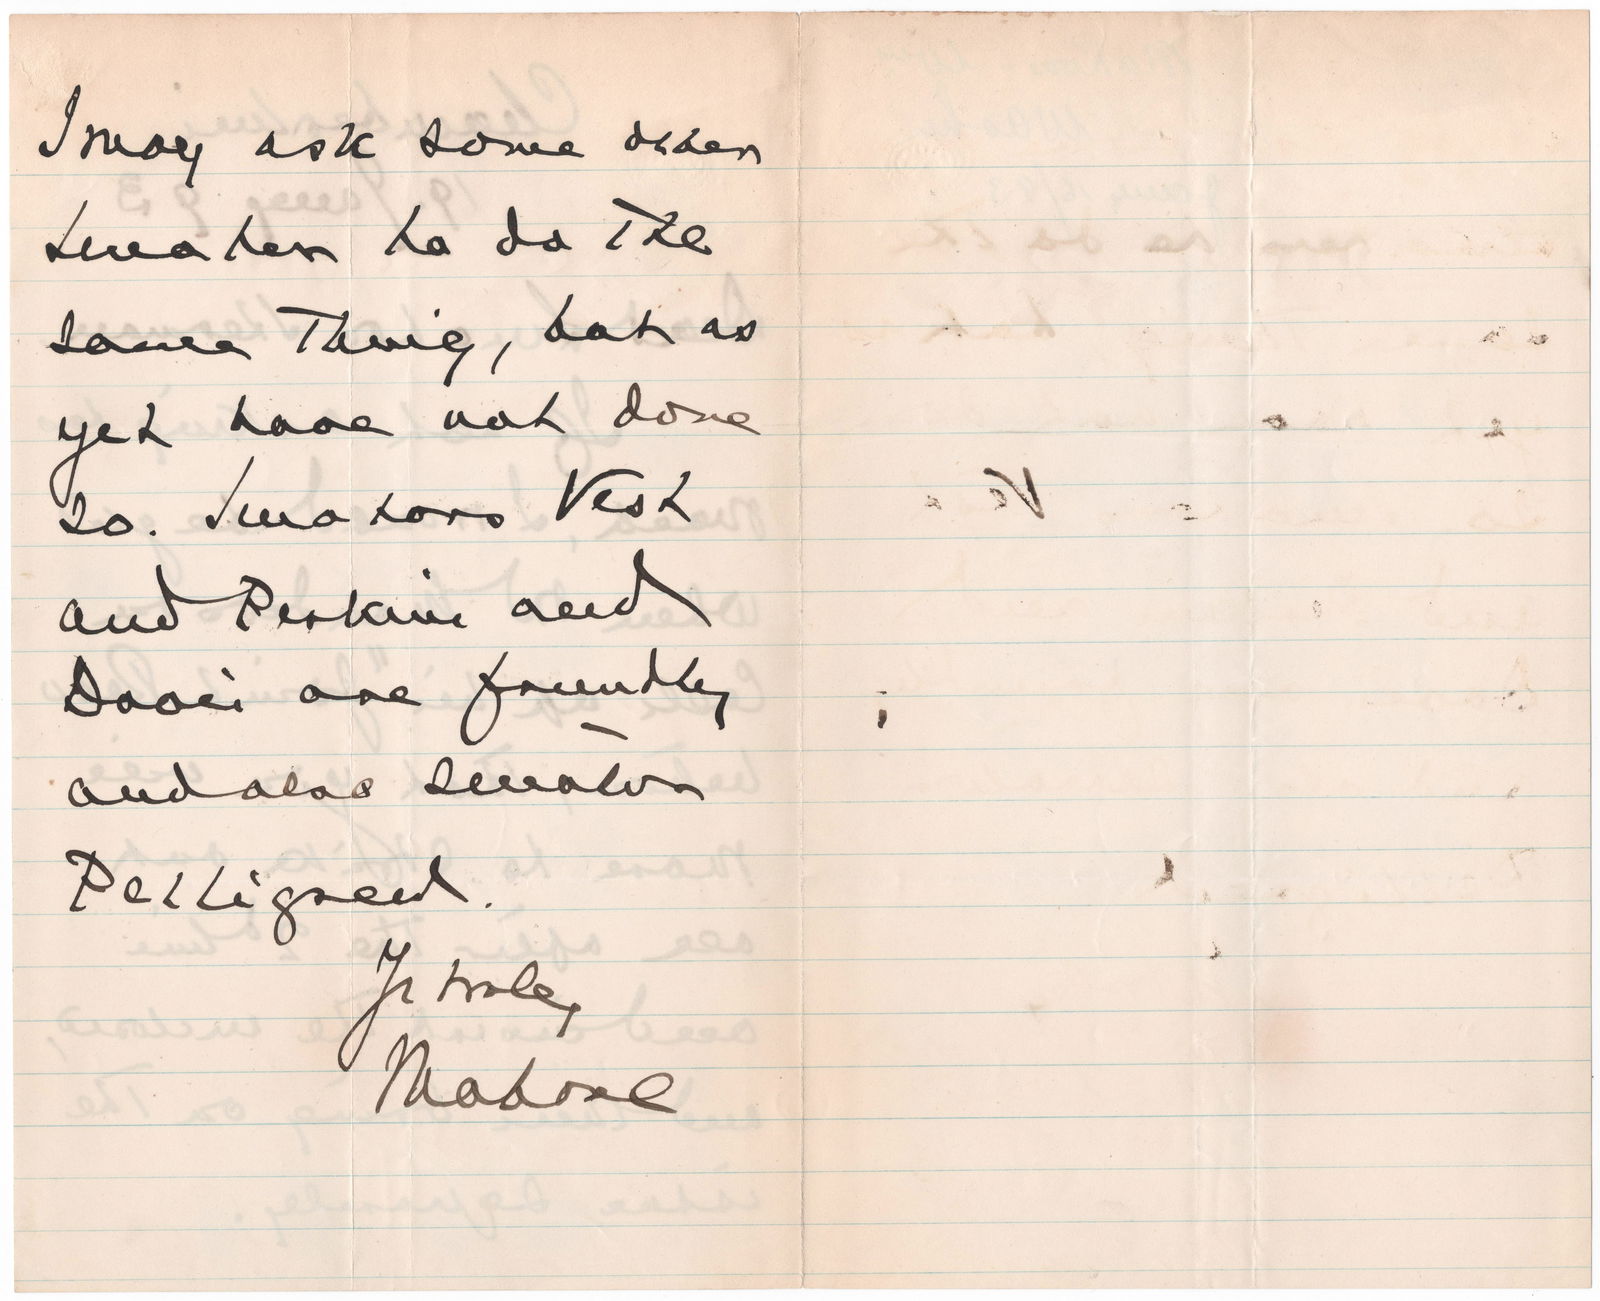 I may ask some other
senator to do the
same Thing, but as
yet have not done
so. Senators Vest
and Perkins and
Davis are friendly
and also senator
Pettigrew.
Yr truly
Mahone